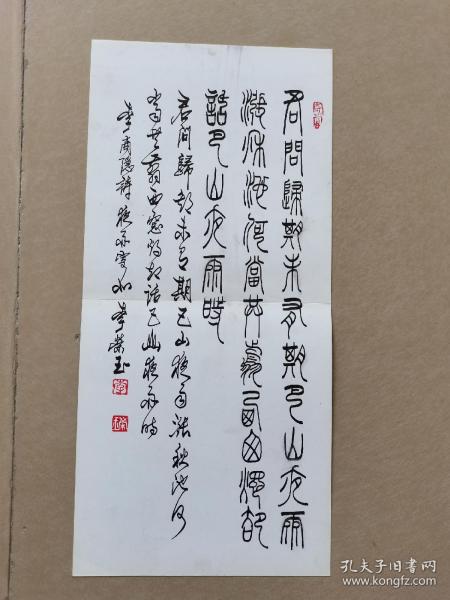 君問歸期未有期巴山夜雨
漲秋池何當共剪西窗燭卻
話巴山夜雨時
君問歸期未有期巴山夜雨漲秋池何
當共剪西窗燭卻話巴山夜雨時
李商隱詩夜雨寄北 李榮玉
孔夫子旧书网
www.kongfz.com